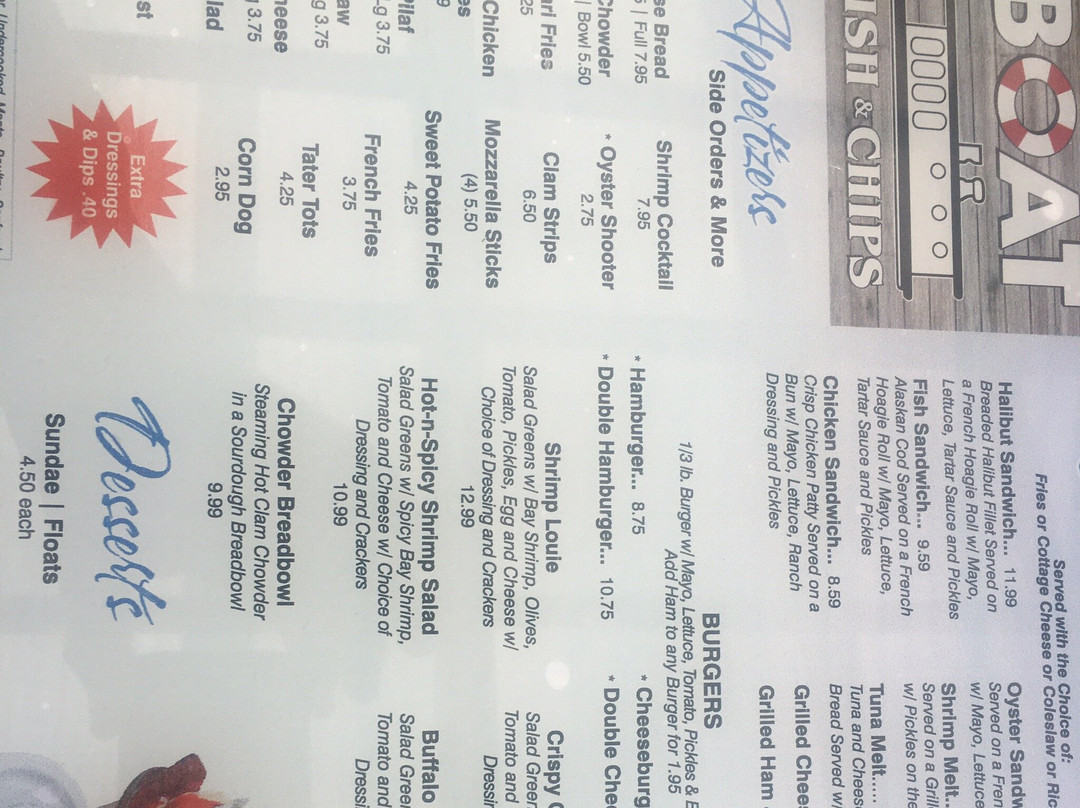 BOAT
ISH & CHIPS
Appetizers
Side Orders & More
se Bread
5 | Full 7.95
Chowder
| Bowl 5.50
arl Fries
25
Chicken
es
9
Pilaf
Lg 3.75
aw
g 3.75
heese
g 3.75
lad
st
Shrimp Cocktail
7.95
* Oyster Shooter
2.75
Clam Strips
6.50
Mozzarella Sticks
(4) 5.50
Sweet Potato Fries
4.25
French Fries
3.75
Tater Tots
4.25
Corn Dog
2.95
Extra
Dressings
& Dips .40
Served with the Choice of:
Fries or Cottage Cheese or Coleslaw or Ric
Halibut Sandwich... 11.99
Breaded Halibut Fillet Served on
a French Hoagie Roll w/ Mayo,
Lettuce, Tartar Sauce and Pickles
Fish Sandwich... 9.59
Alaskan Cod Served on a French
Hoagie Roll w/ Mayo, Lettuce,
Tartar Sauce and Pickles
Chicken Sandwich... 8.59
Crisp Chicken Patty Served on a
Bun w/ Mayo, Lettuce, Ranch
Dressing and Pickles
Oyster Sand
Served on a Fre
w/ Mayo, Lettuc
Shrimp Melt..
Served on a Grill
w/ Pickles on the
Tuna Melt....
Tuna and Chees
Bread Served w/
Grilled Chee
Grilled Ham
BURGERS
1/3 lb. Burger w/ Mayo, Lettuce, Tomato, Pickles &
Add Ham to any Burger for 1.95
* Hamburger... 8.75
* Double Hamburger... 10.75
* Cheeseburg
* Double Che
Shrimp Louie
Salad Greens w/ Bay Shrimp, Olives,
Tomato, Pickles, Egg and Cheese w/
Choice of Dressing and Crackers
12.99
Hot-n-Spicy Shrimp Salad
Salad Greens w/ Spicy Bay Shrimp,
Tomato and Cheese w/ Choice of
Dressing and Crackers
10.99
Chowder Breadbowl
Steaming Hot Clam Chowder
in a Sourdough Breadbowl
9.99
Crispy C
Salad Green
Tomato and
Dressin
Buffalo
Salad Gree
Tomato and
Dressi
Desserts
Sundae | Floats
4.50 each